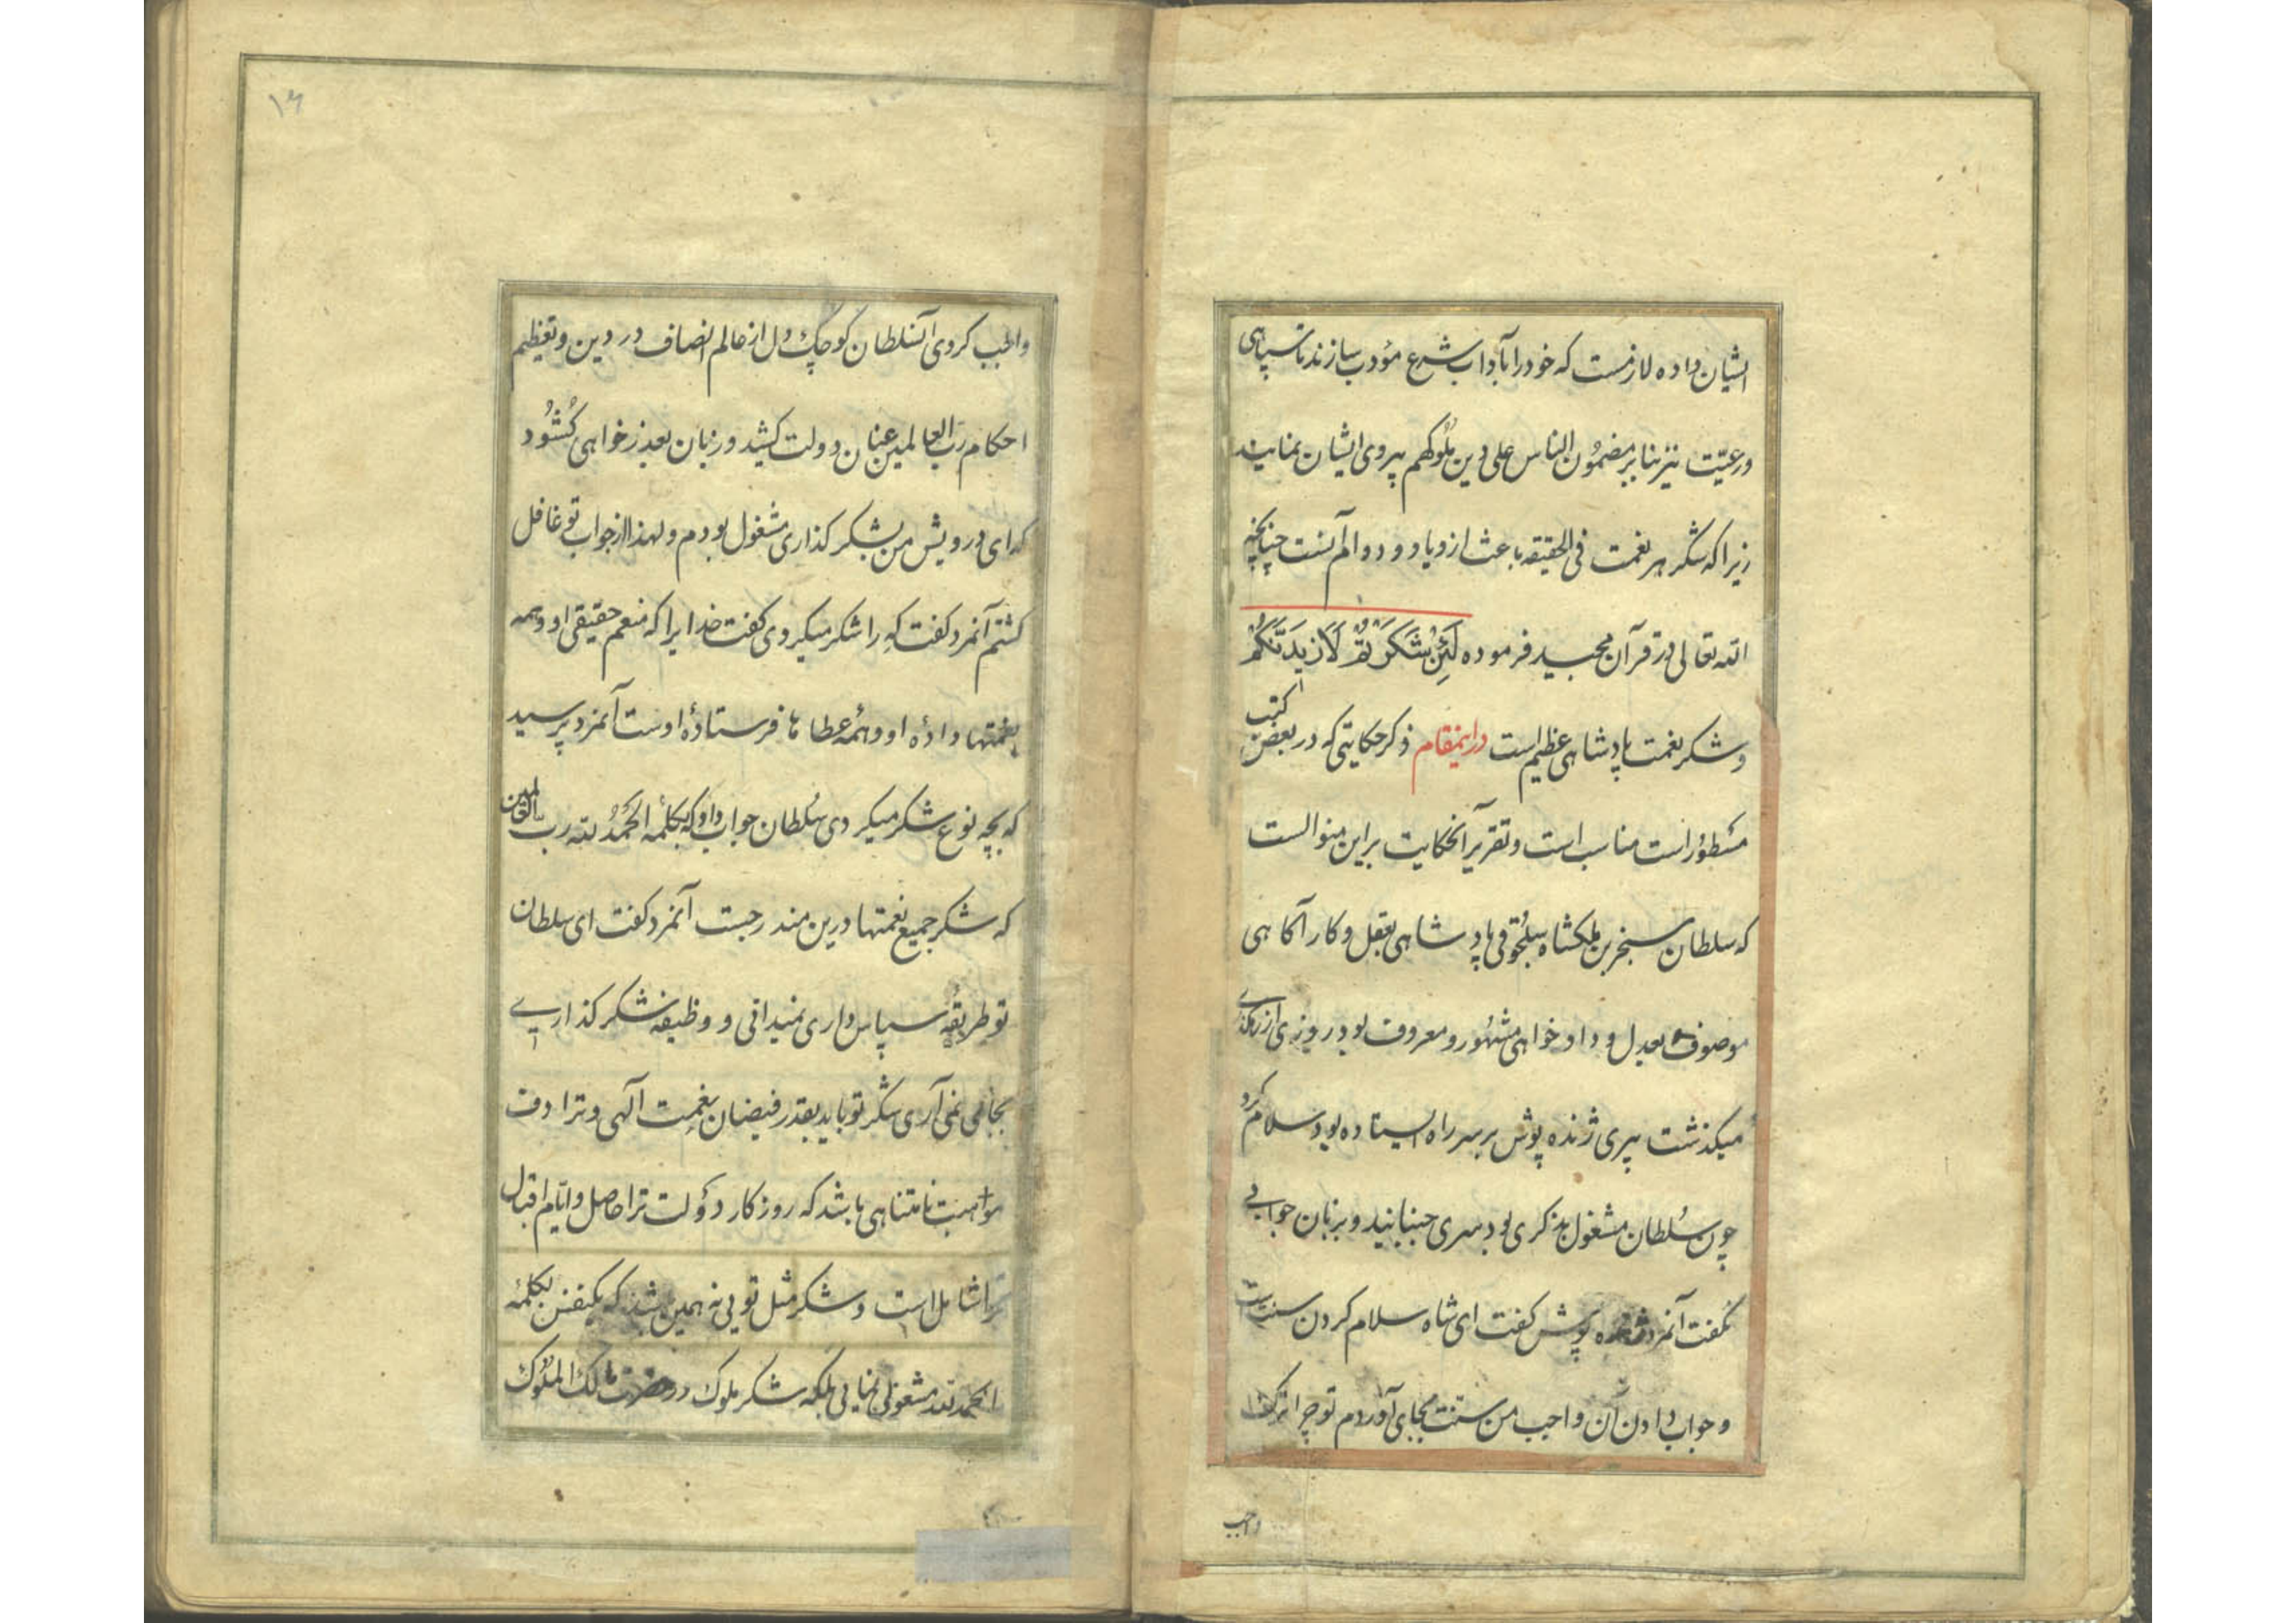 ایشان داده لازمست که خود را بآداب شرع مؤدب سازند تا سپاهی
ورعیّت نیز بنا بر مضمون الناس علی دین مُلوکهم پیروی ایشان نمایند
زیرا که شکر هر نعمت فی الحقیقه باعث ازدیاد و دوام آنست چنانچه
الله تعالی در قرآن مجید فرموده لَئِنْ شَکَرْتُمْ لَاَزیدَنَّکُمْ
و شکر نعمت پادشاهی عظیم است در اینمقام ذکر حکایتی که در بعض کتب
مسطور است مناسب است و تقریر آنحکایت براین منوالست
که سلطان سنجر بن ملکشاه سلجوقی پادشاهی بعقل و کار آکاهی
موصوف و بعدل و داد خواهی مشهور و معروف بود روزی از رهکذری
میکذشت پیری ژنده پوش بر سر راه ایستاده بود سلام کرد
چون سُلطان مشغول بذکری بود سری جنبانید و بزبان جوابی
نکفت آنمرد ژنده پوش کفت ای شاه سلام کردن سنت است
و جواب دادن آن واجب من سنت بجای آوردم تو چرا ترک
واجب
۱۶
واجب کردی آنسلطان کوچک دل از عالم انصاف در دین و تعظیم
احکام ربّ العالمین عنان دولت کشید و زبان بعذر خواهی کُشُود
که ای درویش من بشکر کذاری مشغول بودم و لهذا از جواب تو غافل
کشتم آنمرد کفت کِه را شکر میکردی کفت خدایرا که منعم حقیقی او و همه
نعمتها دادۀ او و همۀ عطاها فرستادۀ اوست آنمرد پرسید
که بچه نوع شکر میکردی سُلطان جواب داد که بکلمۀ الحمدُ لله رب العالمین
که شکر جمیع نعمتها درین مندرجست آنمرد کفت ای سلطان
تو طریقۀ سپاس داری نمیدانی و وظیفۀ شکر کذاری
بجای نمی آری شکر تو باید بقدر فیضان نعمت آلهی و ترادف
مواهب نامتناهی باشد که روزکار دولت ترا حاصل و ایّام اقبال
ترا شامل است و شکر مثل تویی نه همین باشد که بکفتن بکلمۀ
الحمد لله مشغولی نمایی بلکه شکر ملوک در حضرت مالک الملوک